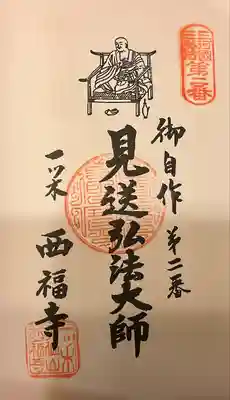 第二番
御自作 第二番
見送弘法大師
一ツ木 西福寺